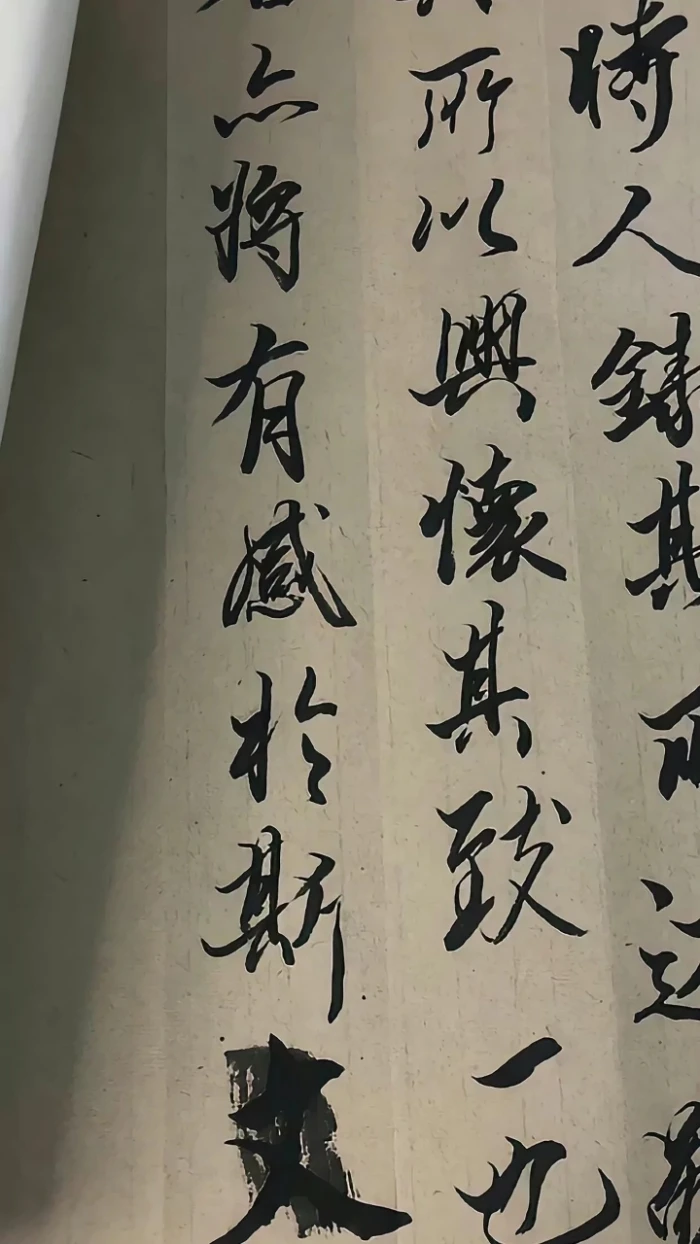 時人錄其所述
所以興懷其致一也
亦將有感於斯文